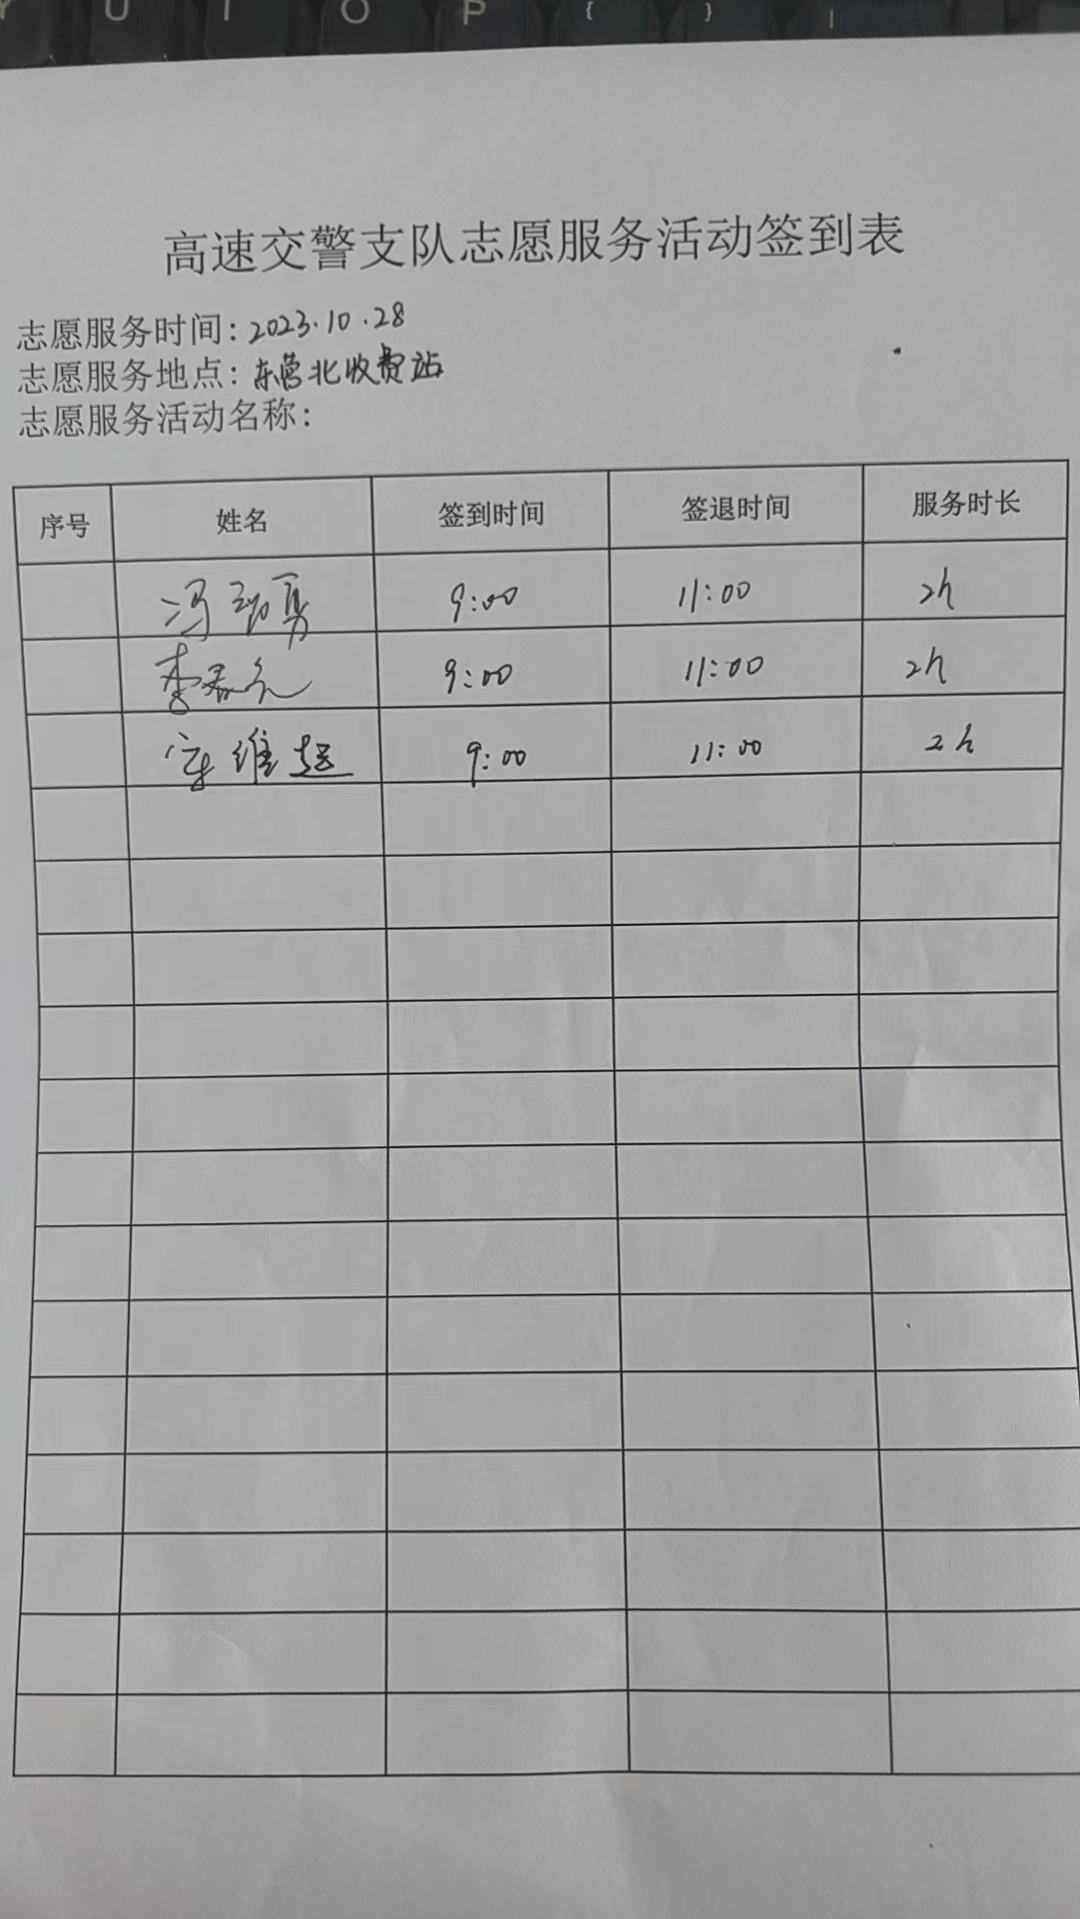 Y U I O P { } |
高速交警支队志愿服务活动签到表
志愿服务时间：2023.10.28
志愿服务地点：东营北收费站
志愿服务活动名称：
序号 姓名 签到时间 签退时间 服务时长
冯劲勇 9:00 11:00 2h
李春元 9:00 11:00 2h
维超 9:00 11:00 2h